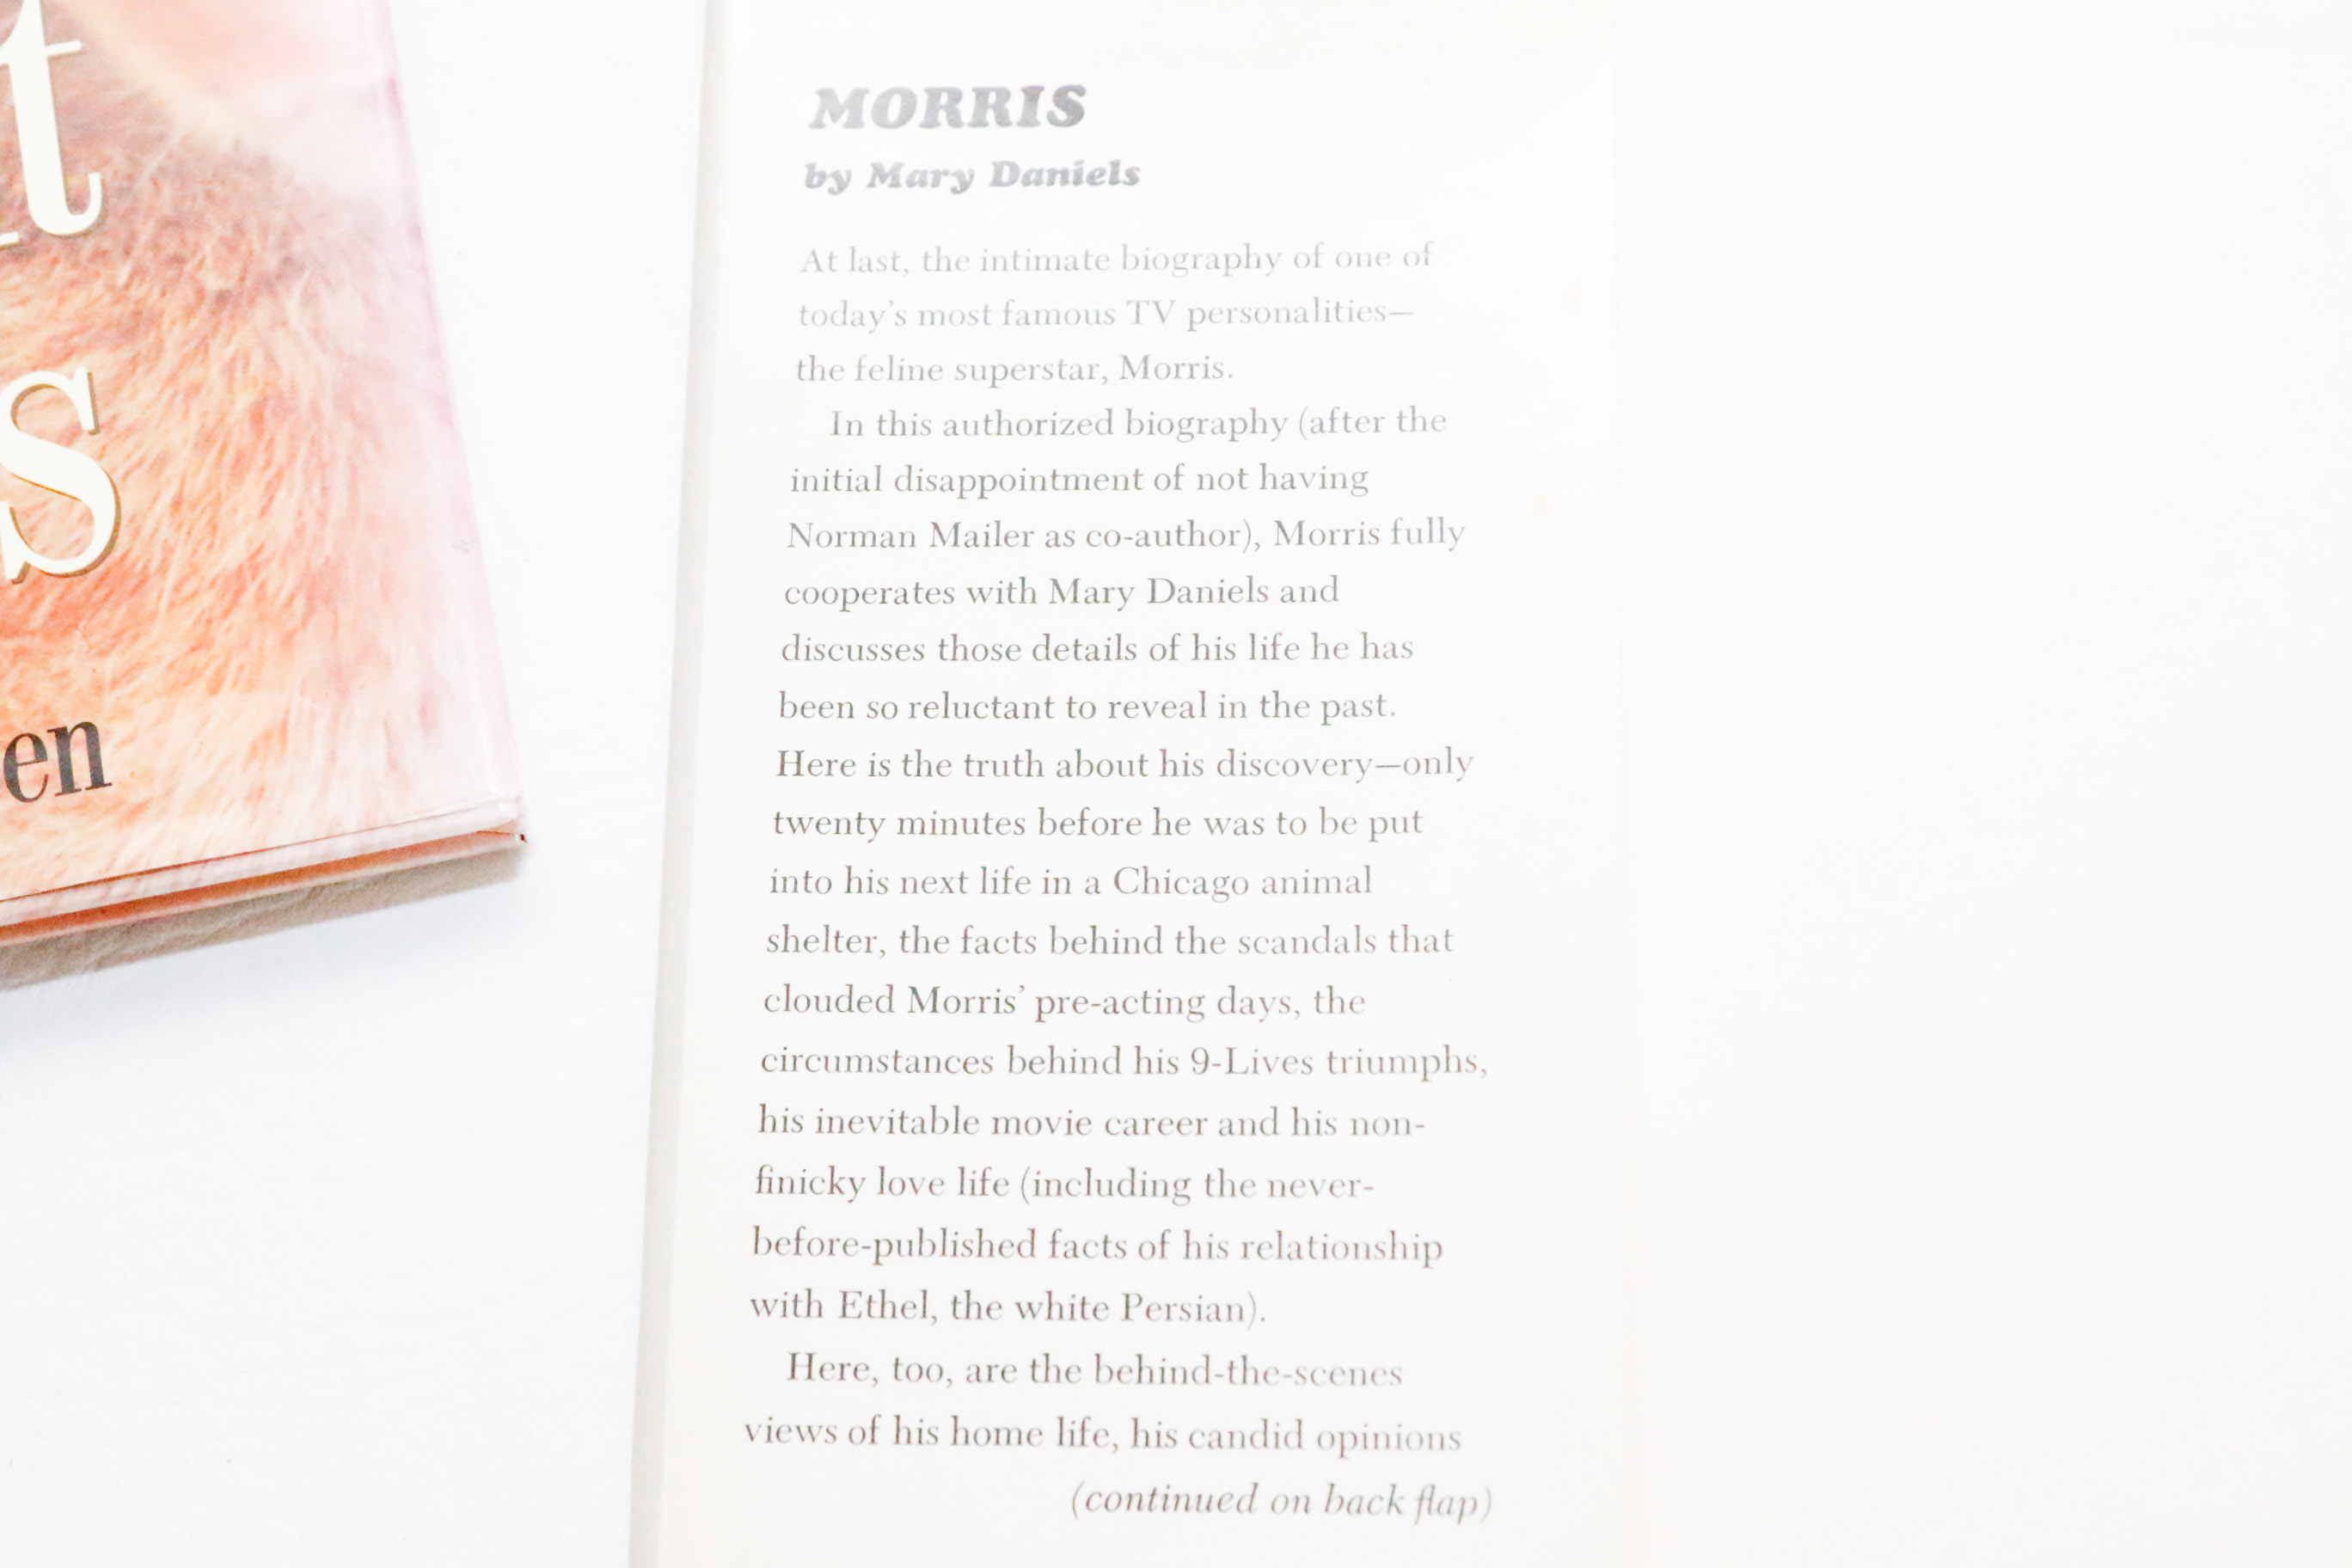 t
s
en
MORRIS
by Mary Daniels
At last, the intimate biography of one of
today's most famous TV personalities—
the feline superstar, Morris.
In this authorized biography (after the
initial disappointment of not having
Norman Mailer as co-author), Morris fully
cooperates with Mary Daniels and
discusses those details of his life he has
been so reluctant to reveal in the past.
Here is the truth about his discovery—only
twenty minutes before he was to be put
into his next life in a Chicago animal
shelter, the facts behind the scandals that
clouded Morris' pre-acting days, the
circumstances behind his 9-Lives triumphs,
his inevitable movie career and his non-
finicky love life (including the never-
before-published facts of his relationship
with Ethel, the white Persian).
Here, too, are the behind-the-scenes
views of his home life, his candid opinions
(continued on back flap)